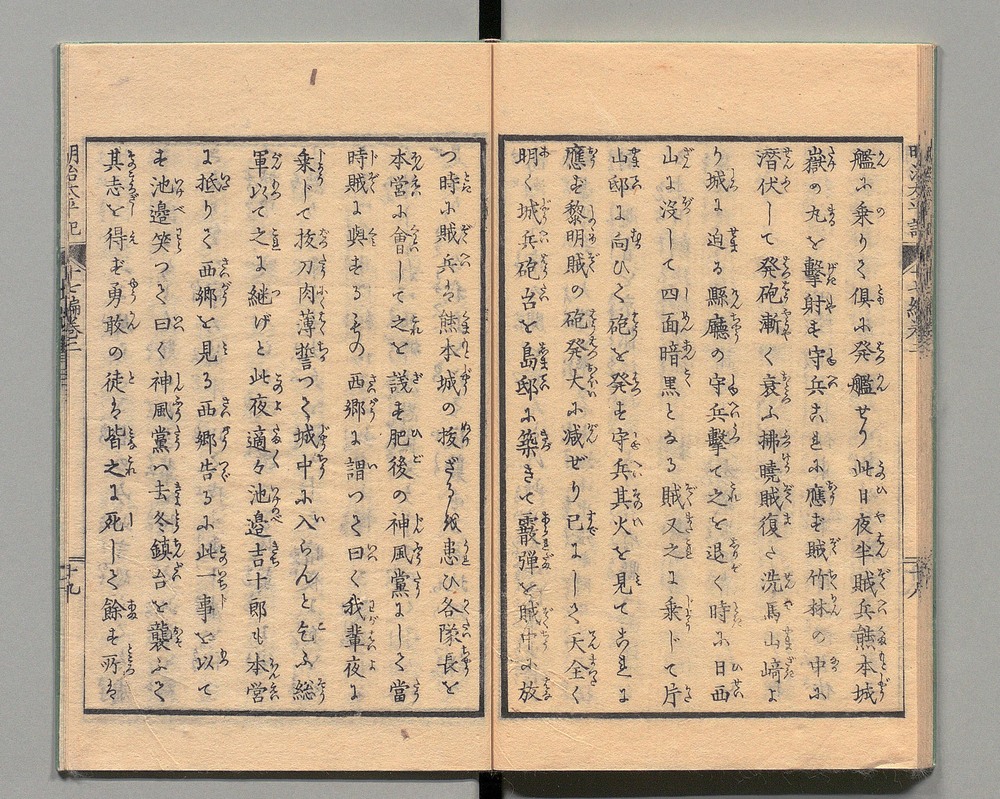 艦に乗りて倶に発艦せり此日夜半賊兵熊本城
嶽の丸を撃射す守兵これに應ず賊竹林の中に
潜伏して発砲漸く衰ふ拂暁賊復た洗馬山﨑よ
り城に迫る縣廳の守兵撃て之を退く時に日西
山に没して四面暗黒となる賊又之に乗じて片
山邸に向ひて砲を発す守兵其火を見てこれに
應ず黎明賊の砲発大に减ぜり已にして天全く
明く城兵砲台を島邸に築きて霰弾を賊中に放
つ時に賊兵は熊本城の抜ざるを患ひ各隊長を
本営に會して之を議す肥後の神風黨にして當
時賊に與するもの西郷に謂つて曰く我輩夜に
乗じて抜刀肉薄誓つて城中に入らんと乞ふ総
軍以て之に継げと此夜適々池邉吉十郎も本営
に抵りて西郷を見る西郷告るに此一事を以て
す池邉笑つて曰く神風黨ハ去冬鎮台を襲ふて
其志を得ず勇敢の徒は皆之に死して餘す所は
明治太平記
十七編巻之
十九